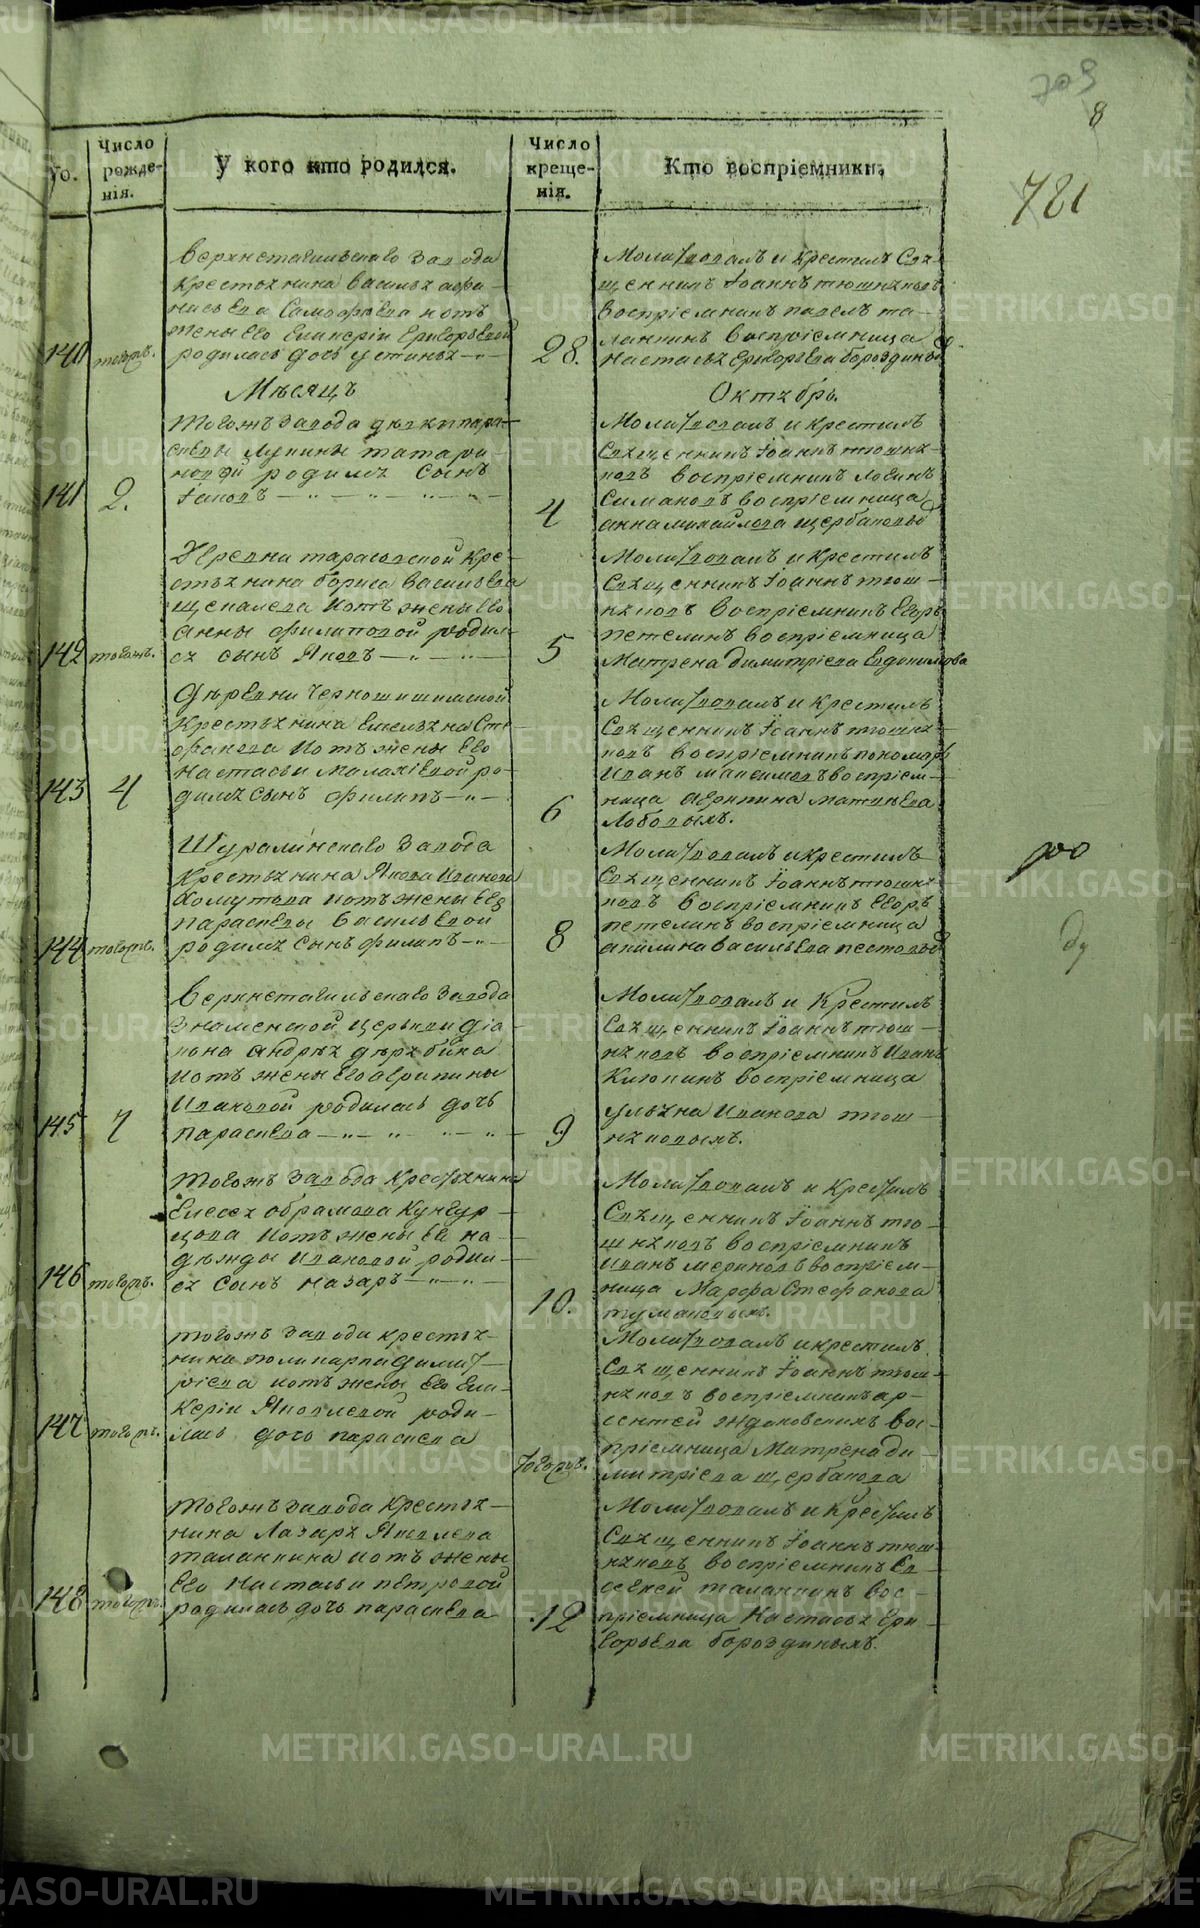 709
8
781
Число рожденія.
У кого кто родился.
Число крещенія.
Кто воспріемники.
Верхнетагильскаго завода
крестьянина Василья Афа-
насьева Самофѣева и отъ
жены его Гликеріи Григорьевой
140 тогожъ. родилась дочь Устинья
28.
Молитвовалъ и крестилъ Свя-
щенникъ Іоаннъ Тюшняковъ
воспріемникъ Павелъ Та-
ланкинъ воспріемница
Настасья Григорьева Бороздиныхъ
Мѣсяцъ
Октябрь.
Тогожъ завода дѣвки Пара-
скевы Лупины Татари-
новой родился сынъ
141 2. Іаковъ
4
Молитвовалъ и крестилъ
Священникъ Іоаннъ Тюшня-
ковъ воспріемникъ Логинъ
Симановъ воспріемница
Анна Михайлова Щербаковы
Деревни Тарасовской кре-
стьянина Бориса Васильева
Щепалева и отъ жены его
Анны Филиповой родил-
142 тогожъ. ся сынъ Яковъ
5
Молитвовалъ и крестилъ
Священникъ Іоаннъ Тюш-
няковъ воспріемникъ Егоръ
Петелинъ воспріемница
Матрена Димитріева Евдокимова
Деревни Черношишимской
крестьянина Емельяна Сте-
фанова и отъ жены его
Настасьи Малахіевой ро-
143 4 дился сынъ Филипъ
6
Молитвовалъ и крестилъ
Священникъ Іоаннъ Тюшня-
ковъ воспріемникъ пономарь
Иванъ Максимовъ воспріем-
ница Агрипина Матвѣева
Лободыхъ.
Шуралинскаго завода
крестьянина Якова Иванова
Хомутова и отъ жены его
Параскевы Васильевой
144 тогожъ. родился сынъ Филипъ
8
Молитвовалъ и крестилъ
Священникъ Іоаннъ Тюшня-
ковъ воспріемникъ Егоръ
Петелинъ воспріемница
Акилина Васильева Пестовы
Верхнетагильскаго завода
Знаменской церькви діа-
кона Андрея Дерябина
и отъ жены его Агрипины
Ивановой родилась дочь
145 7 Параскева
9
Молитвовалъ и крестилъ
Священникъ Іоаннъ Тюш-
няковъ воспріемникъ Иванъ
Клюкинъ воспріемница
Ульяна Иванова Тюш-
няковыхъ.
Тогожъ завода крестьянина
Елесея Абрамова Кунгур-
цова и отъ жены его На-
дежды Ивановой родил-
146 тогожъ. ся сынъ Назаръ
10.
Молитвовалъ и крестилъ
Священникъ Іоаннъ Тю-
шняковъ воспріемникъ
Иванъ Мериновъ воспріем-
ница Марфа Стефанова
Тумановыхъ.
Тогожъ завода крестья-
нина Поликарпа Димит-
ріева и отъ жены его Гли-
керіи Яковлевой роди-
147 тогожъ. лась дочь Параскева
тогожъ.
Молитвовалъ и крестилъ
Священникъ Іоаннъ Тюш-
няковъ воспріемникъ Ар-
сентей Ждановскихъ вос-
пріемница Матрена Ди-
митріева Щербакова
Тогожъ завода крестья-
нина Лазаря Яковлева
Таланкина и отъ жены
его Настасьи Петровой
148 тогожъ. родилась дочь Параскева
12
Молитвовалъ и крестилъ
Священникъ Іоаннъ Тюш-
няковъ воспріемникъ Ев-
сегней Таланкинъ вос-
пріемница Настасья Гри-
горьева Бороздиныхъ.
METRIKI.GASO-URAL.RU